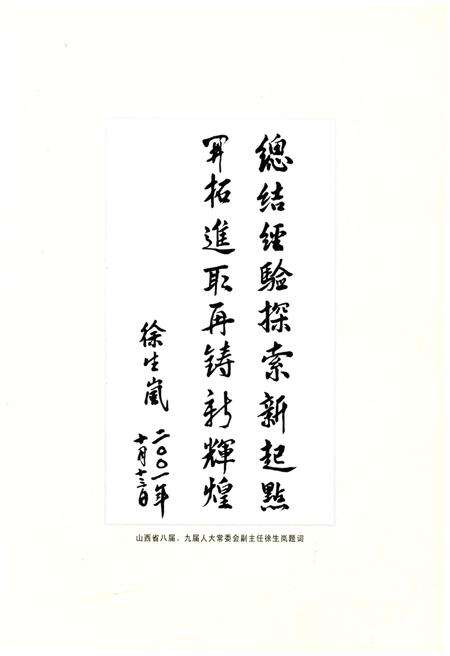 總结經驗探索新起點
開拓進取再铸新輝煌
徐生嵐
二〇〇一年
十月十三日
山西省八届、九届人大常委会副主任徐生岚题词